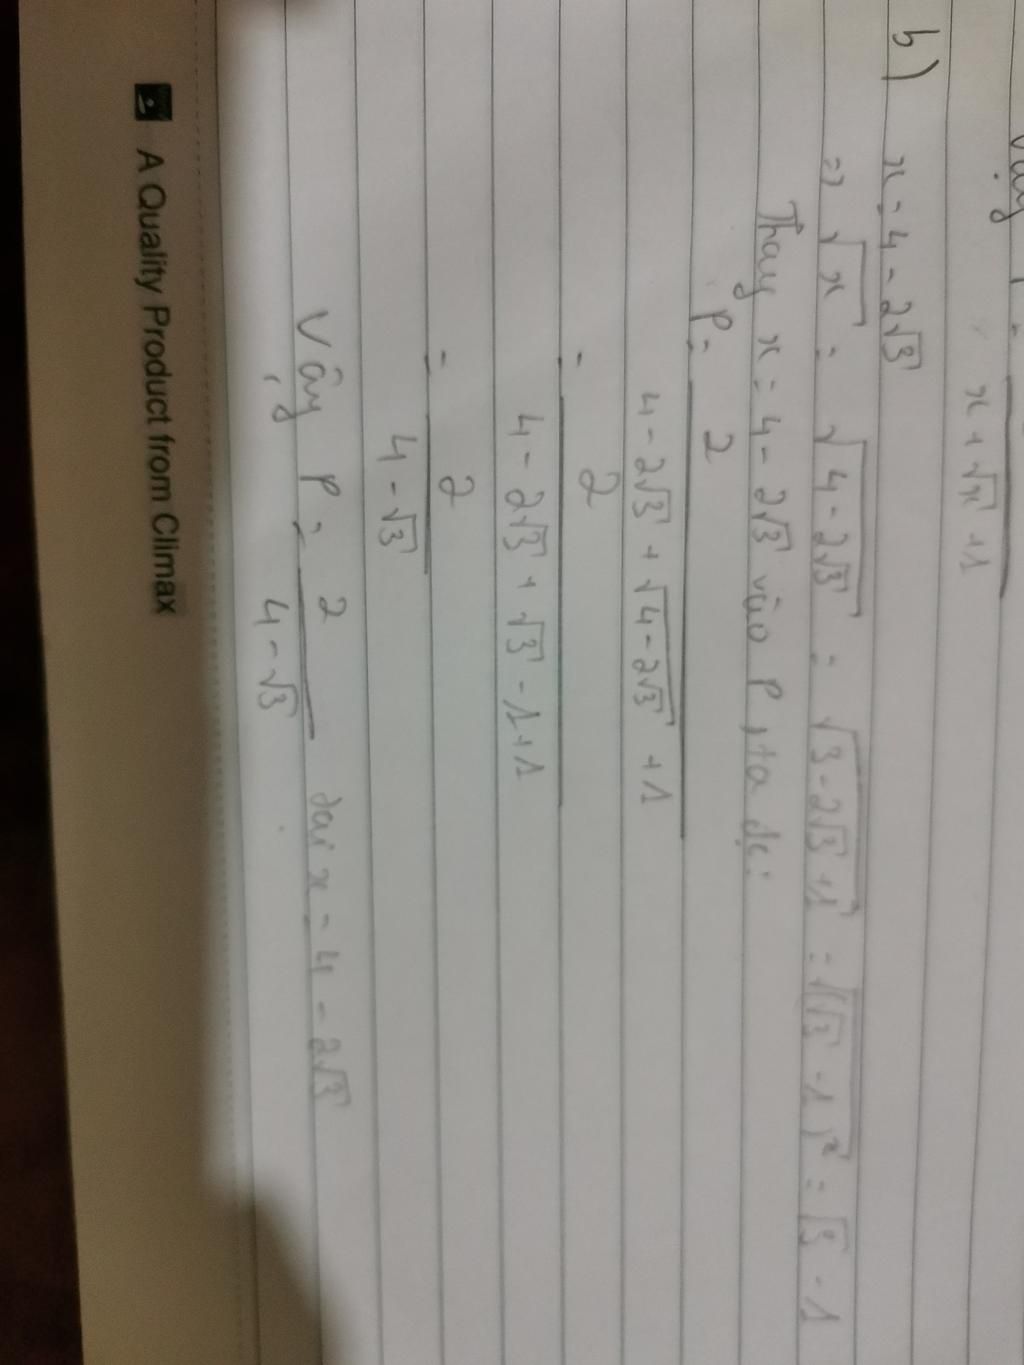 x + √x + 1
b) x = 4 - 2√3
=> √x = √(4 - 2√3) = √(3 - 2√3 + 1) = √((√3 - 1)²) = √3 - 1
Thay x = 4 - 2√3 vào P, ta đc:
P = 2 / (4 - 2√3 + √(4 - 2√3) + 1)
= 2 / (4 - 2√3 + √3 - 1 + 1)
= 2 / (4 - √3)
Vậy P = 2 / (4 - √3) x = 4 - 2√3
A Quality Product from Climax